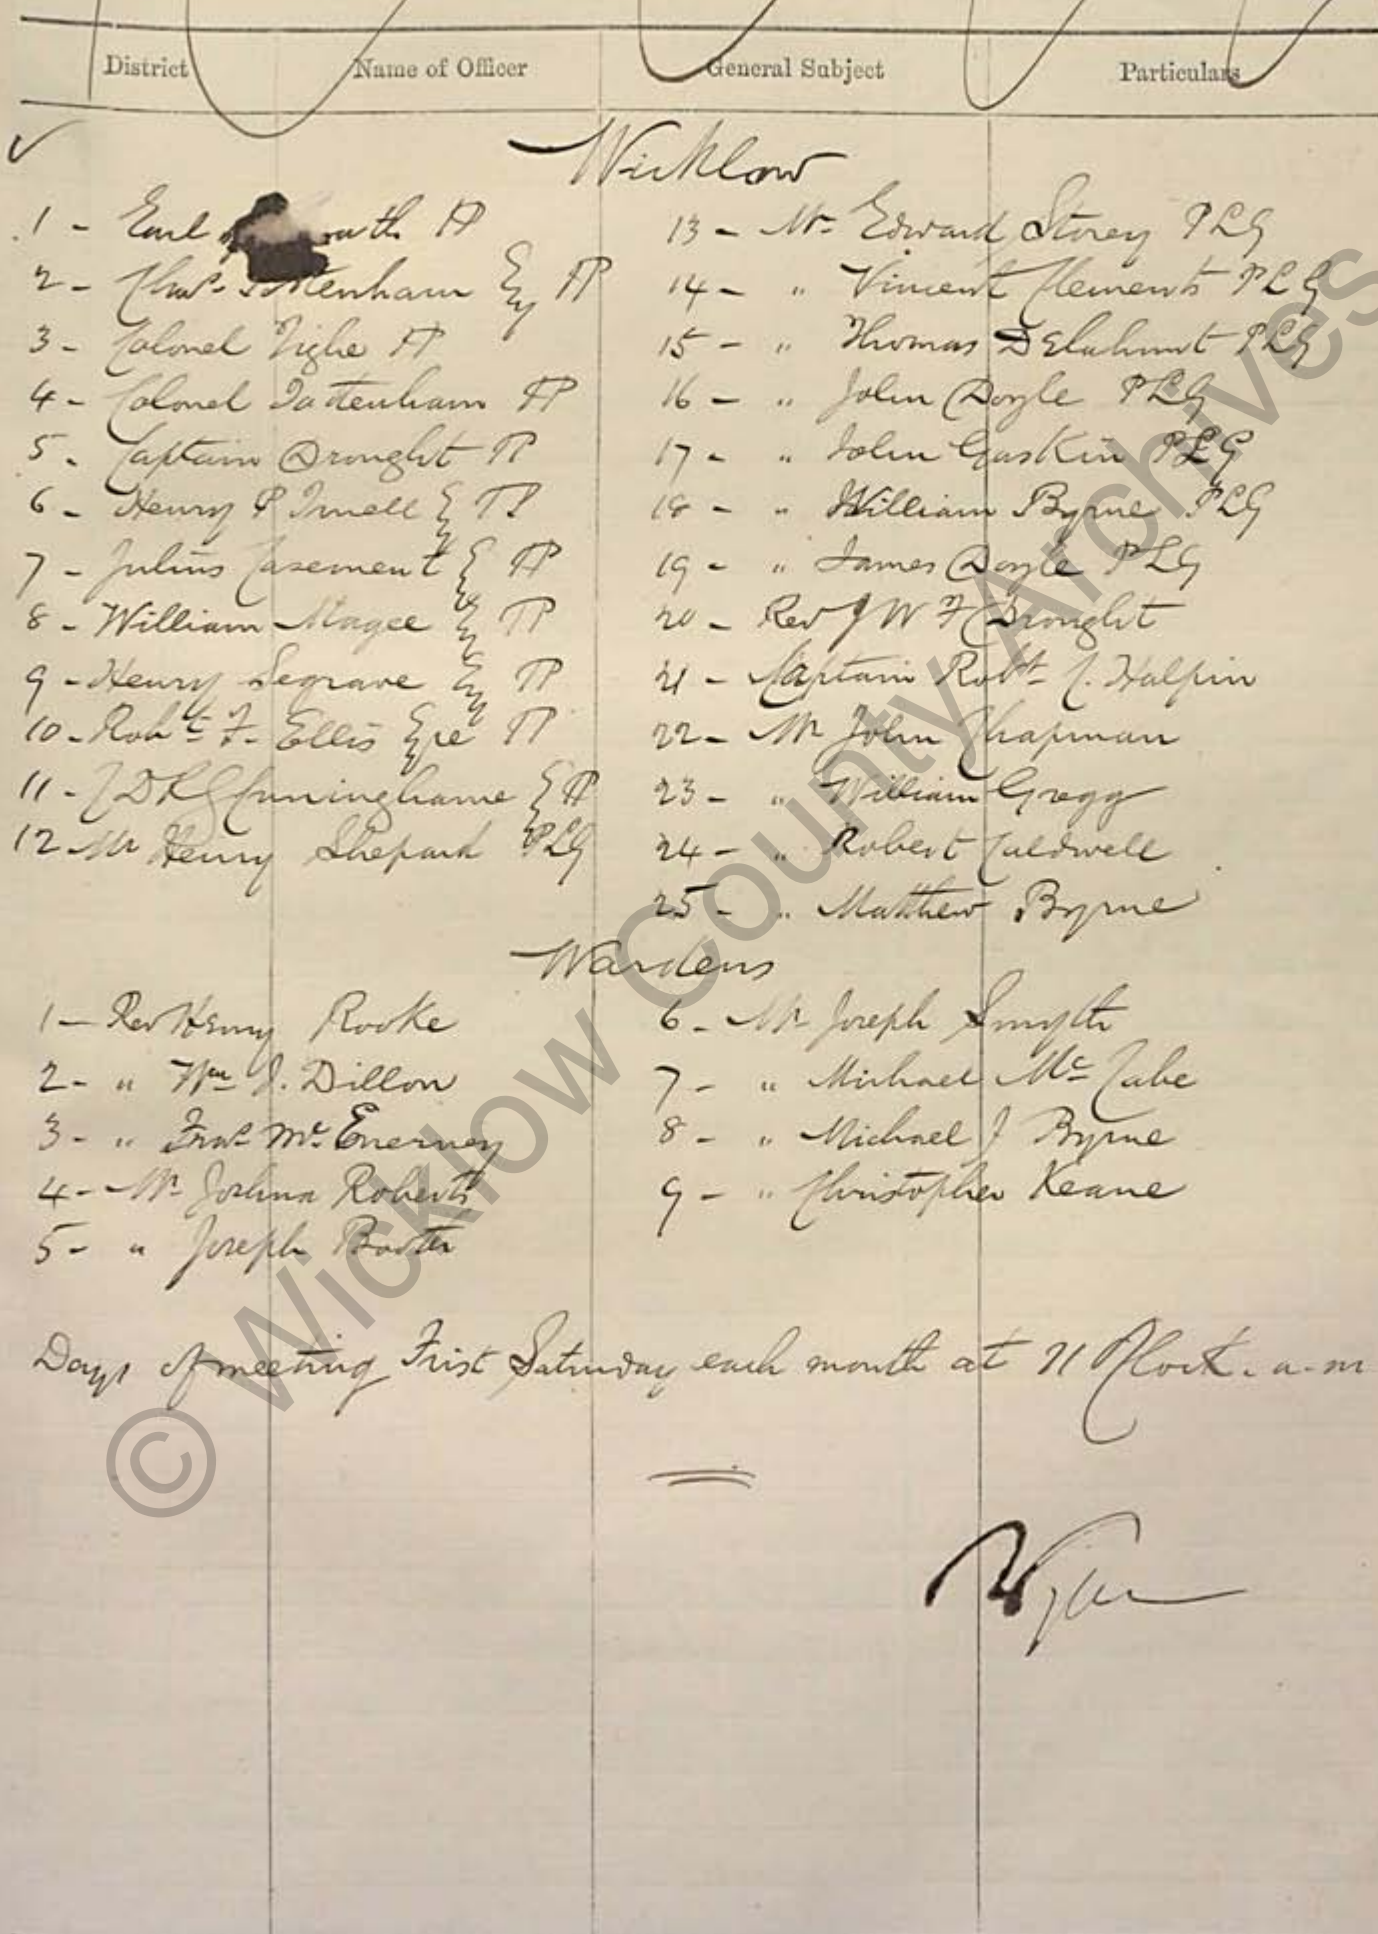 District Name of Officer General Subject Particulars
Wicklow
1 - Earl JP
2 - Chas. Tottenham Esq JP
3 - Colonel Tighe JP
4 - Colonel Tottenham JP
5 - Captain Drought JP
6 - Henry P Esq JP
7 - Julius Casement Esq JP
8 - William Magee Esq JP
9 - Henry Segrave Esq JP
10 - Robt F. Ellis Esqre JP
11 - Cuninghame Esq JP
12 Mr Henry Shepard PLG
13 - Mr Edward Storey PLG
14 - " Vincent Clements PLG
15 - " Thomas DElahunt PLG
16 - " John Doyle PLG
17 - " John Gaskin PLG
18 - " William Byrne PLG
19 - " James Doyle PLG
20 - Rev J W F Drought
21 - Captain Robt C. Halpin
22 - Mr John Chapman
23 - " William Gregg
24 - " Robert Caldwell
25 - " Matthew Byrne
Wardens
1 - Rev Henry Rooke
2 - " Wm J. Dillon
3 - " Fras McEnerney
4 - Mr Joshua Roberts
5 - " Joseph Booth
6 - Mr Joseph Smyth
7 - " Michael McCabe
8 - " Michael J Byrne
9 - " Christopher Keane
Days of meeting First Saturday each month at 11 O'Clock. a.m
© Wicklow County Archives